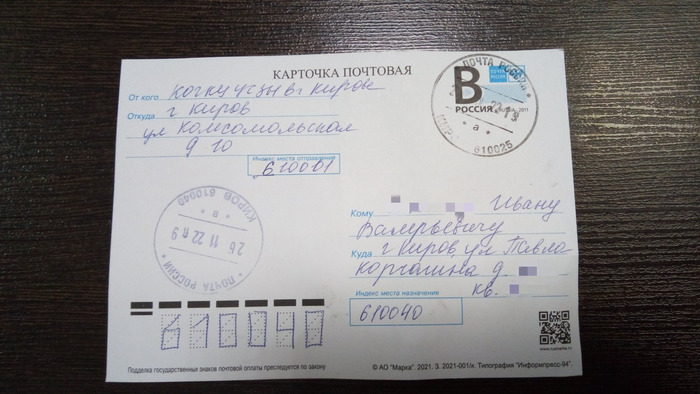 КАРТОЧКА ПОЧТОВАЯ
От кого
г Киров
Откуда
ул Комсомольская
д 10
Индекс места отправления
610001
B
РОССИЯ RUSSIA 2021
ПОЧТА РОССИИ
КИРОВ 610025
22 13
а
КИРОВ 610040
26 11 22 П 9
ПОЧТА РОССИИ
Кому Ивану
Валерьевичу
Куда г Киров, ул Павла
Корчагина д
кв.
Индекс места назначения
610040
610040
Подделка государственных знаков почтовой оплаты преследуется по закону
© АО "Марка". 2021. З. 2021-001/к. Типография "Информпресс-94".